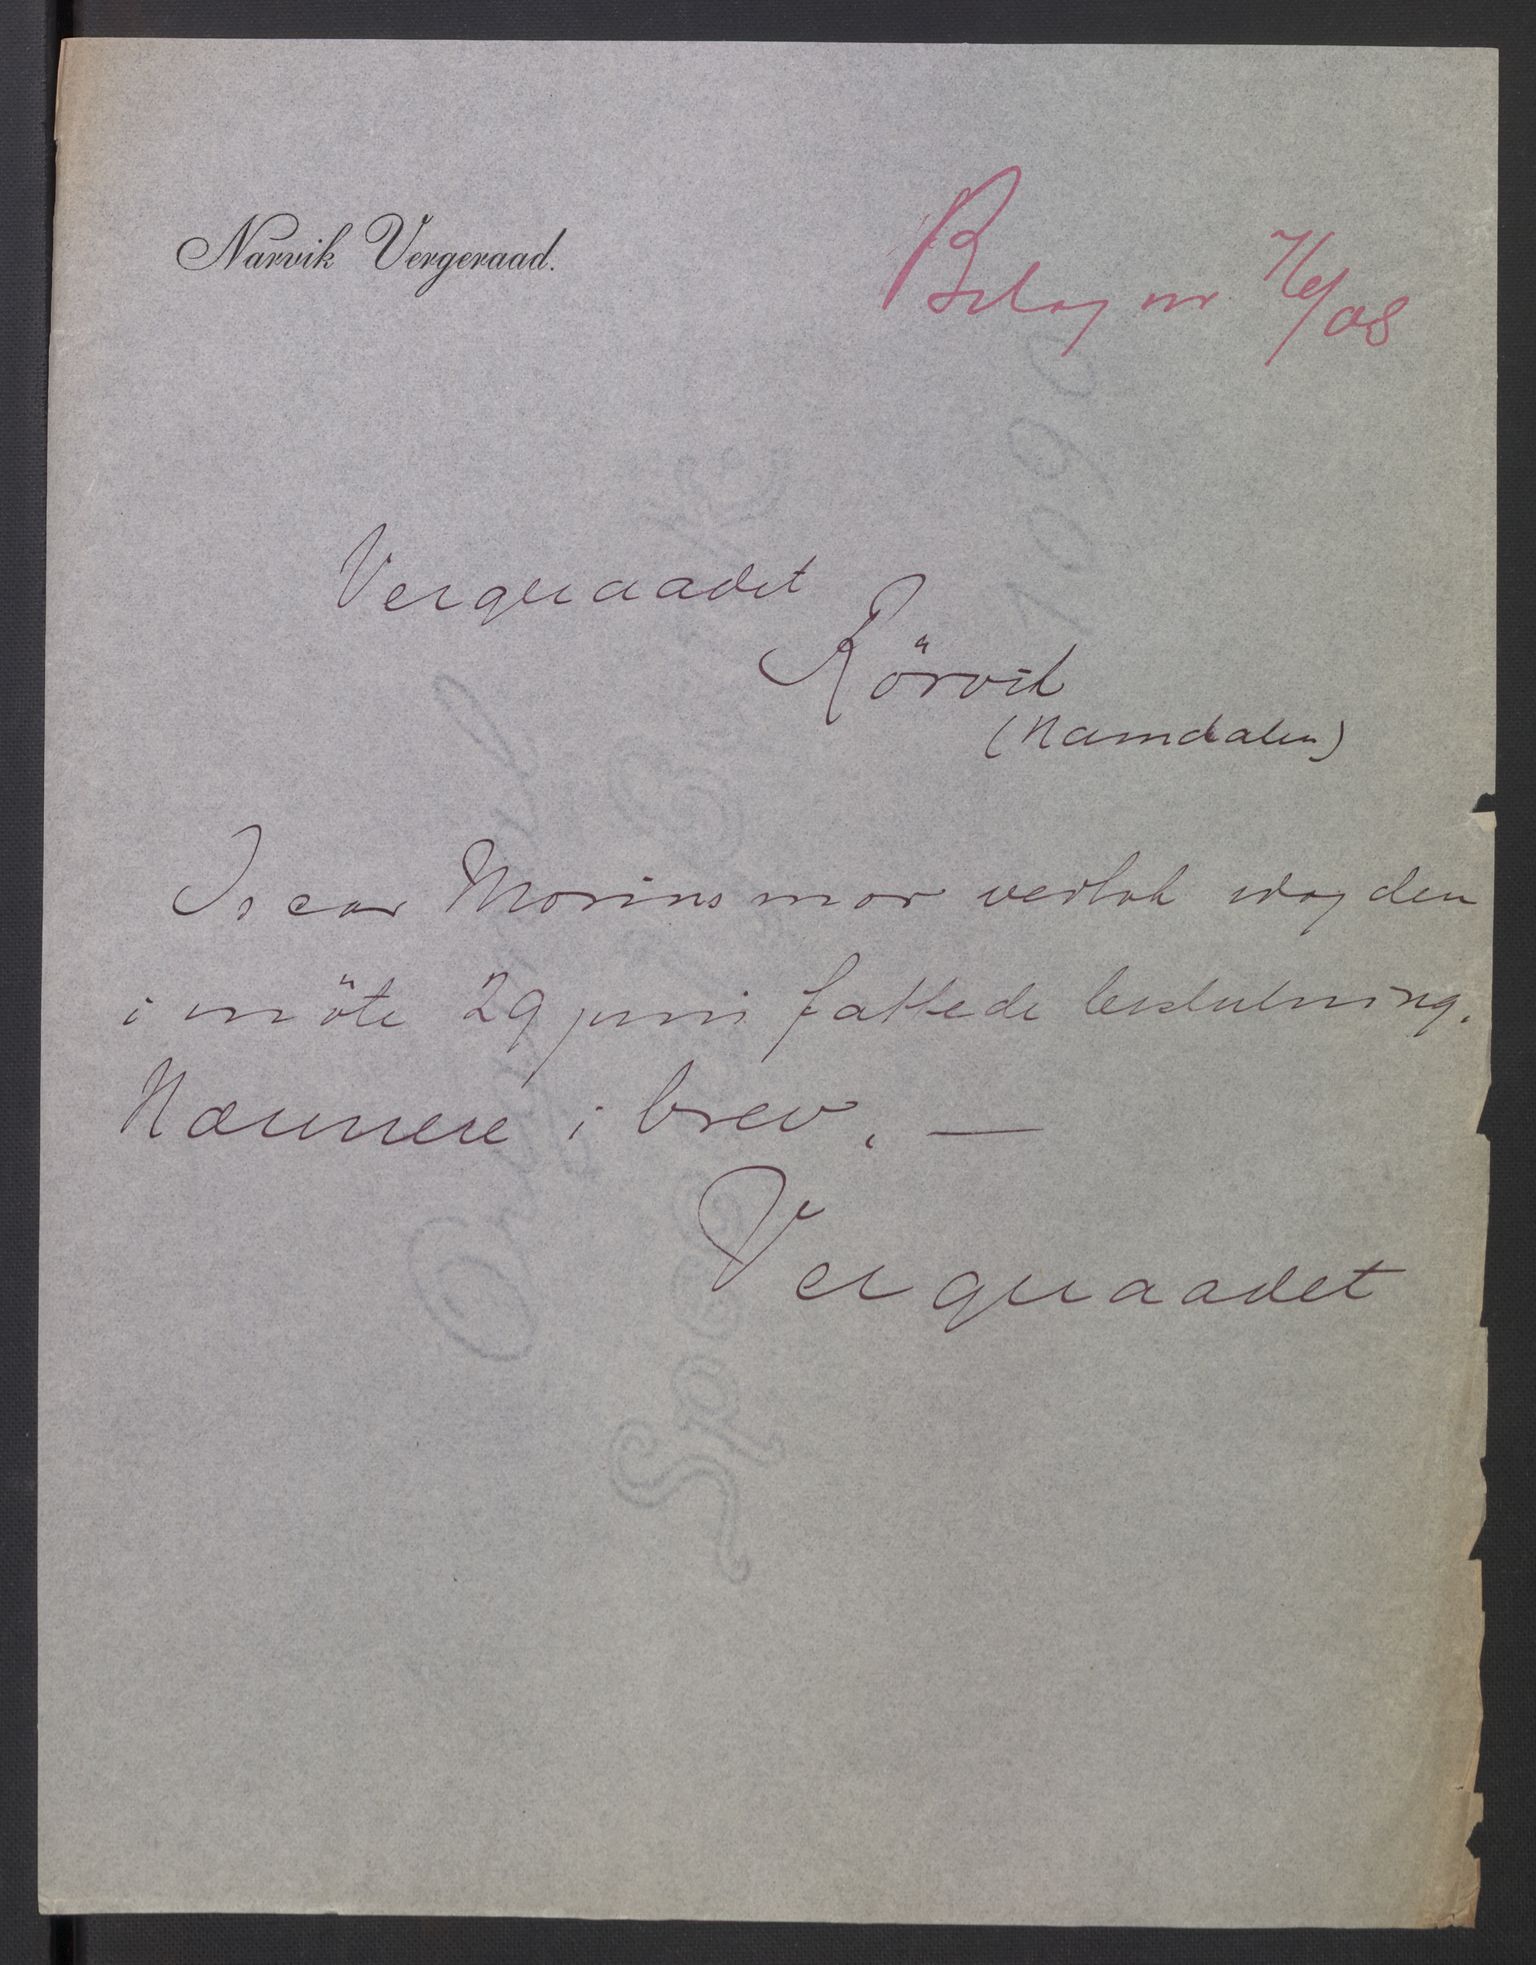 Narvik Vergeraad.
Bilag nr 76/08
Vergeraadet
Rörvik
(Namdalen)
Oscar Morins mor vedtok idag den
i möte 29 juni fattede beslutning.
Nærmere i brev. —
Vergeraadet